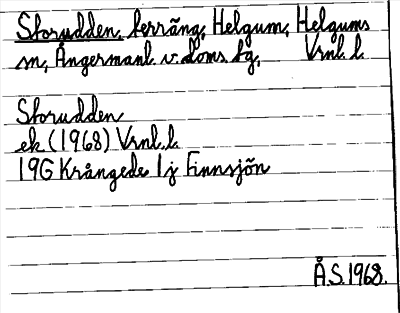 Storudden, terräng, Helgum, Helgums
sn, Ångermanl. v. doms. fg, Vrnl. l.
Storudden
ek (1968) Vrnl. l.
19G Krångede 1j Finnsjön
Å.S. 1968.